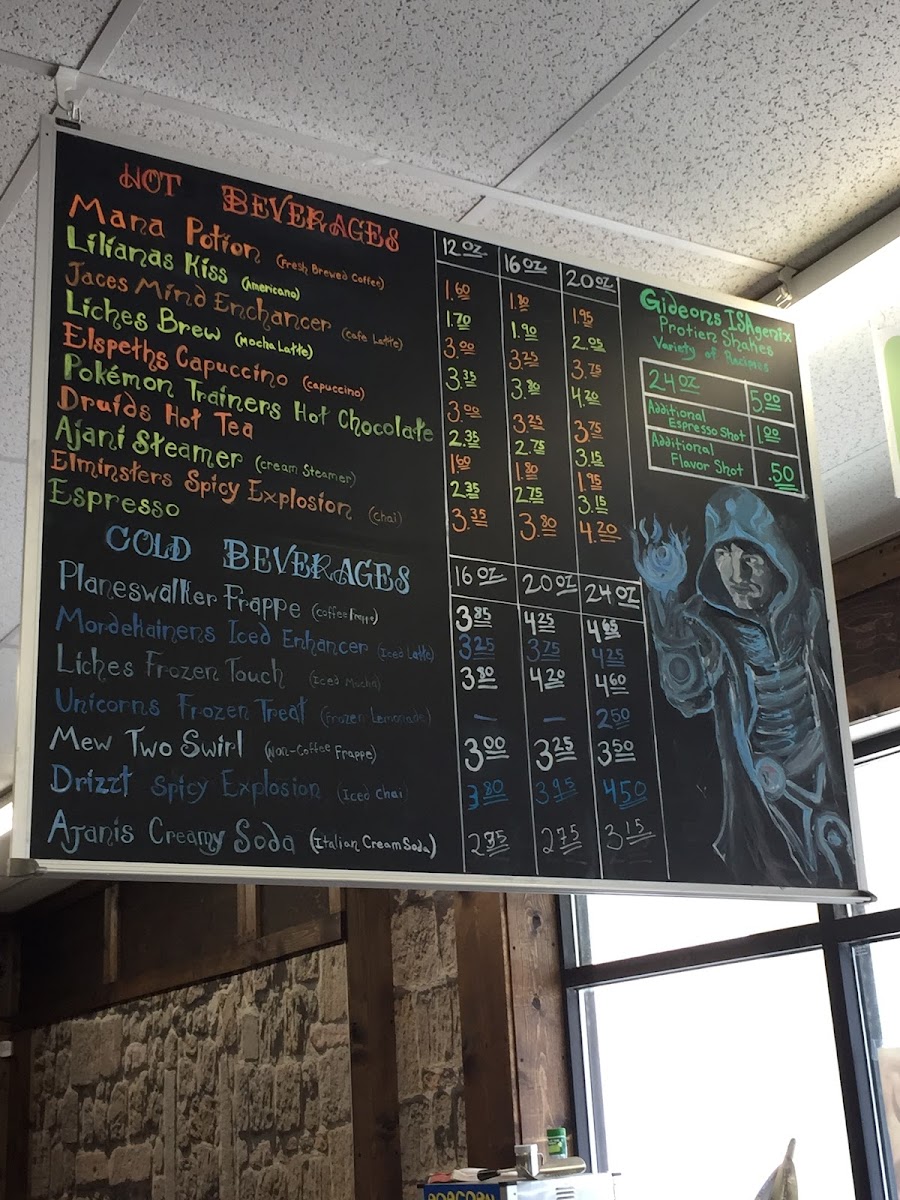 HOT BEVERAGES 12 oz 16 oz 20 oz
Mana Potion (Fresh Brewed Coffee) 1.60 1.80 1.95
Lilianas Kiss (Americano) 1.70 1.90 2.05
Jaces Mind Enchancer (Cafe Latte) 3.00 3.25 3.75
Liches Brew (Mocha Latte) 3.35 3.80 4.20
Elspeths Capuccino (capuccino) 3.00 3.25 3.75
Pokémon Trainers Hot Chocolate 2.35 2.75 3.15
Druids Hot Tea 1.60 1.80 1.95
Ajani Steamer (cream Steamer) 2.35 2.75 3.15
Elminsters Spicy Explosion (Chai) 3.35 3.80 4.20
Espresso
COLD BEVERAGES 16 oz 20 oz 24 oz
Planeswalker Frappe (coffee Frappe) 3.85 4.25 4.65
Mordehainens Iced Enhancer (Iced Latte) 3.25 3.75 4.25
Liches Frozen Touch (Iced Mocha) 3.80 4.20 4.60
Unicorns Frozen Treat (Frozen Lemonade) — — 2.50
Mew Two Swirl (Non-Coffee Frappe) 3.00 3.25 3.50
Drizzt Spicy Explosion (Iced Chai) 3.80 3.95 4.50
Ajanis Creamy Soda (Italian Cream Soda) 2.75 3.15
Gideons ISAgenix
Protien Shakes
Variety of Racipies
24 oz 5.00
Additional
Espresso Shot 1.00
Additional
Flavor Shot .50
POPCORN